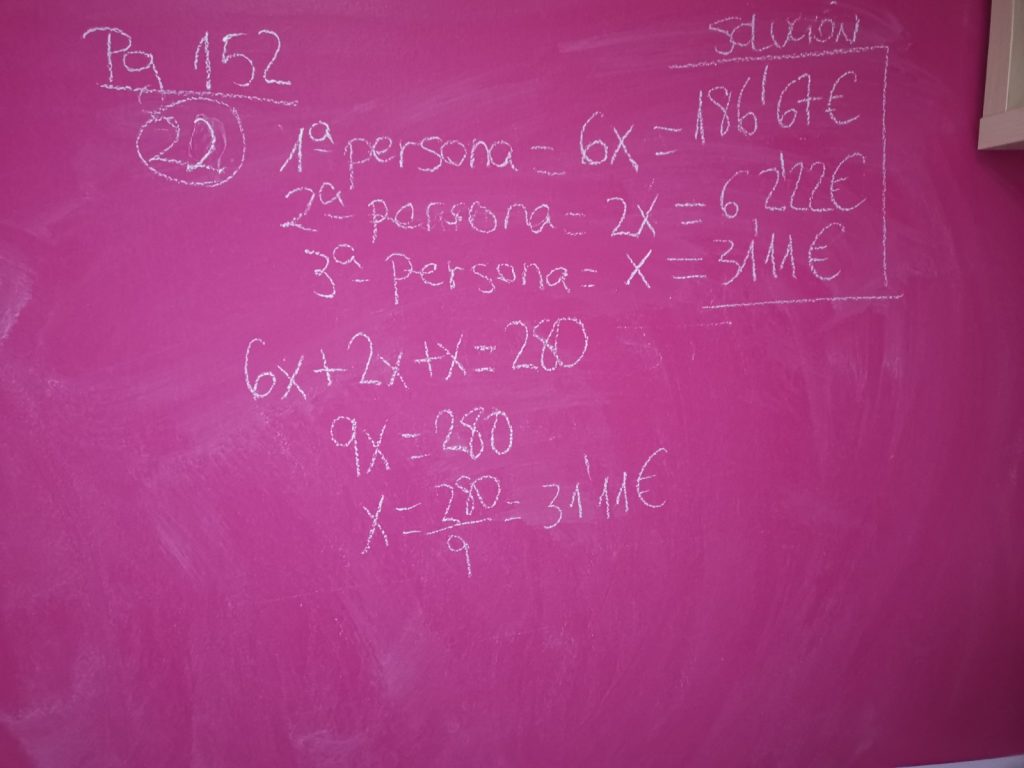 Pg 152
SOLUCIÓN
22 1ª persona = 6x = 186'67€
2ª persona = 2x = 62'22€
3ª persona = x = 31'11€
6x+2x+x=280
9x=280
x=280/9=31'11€